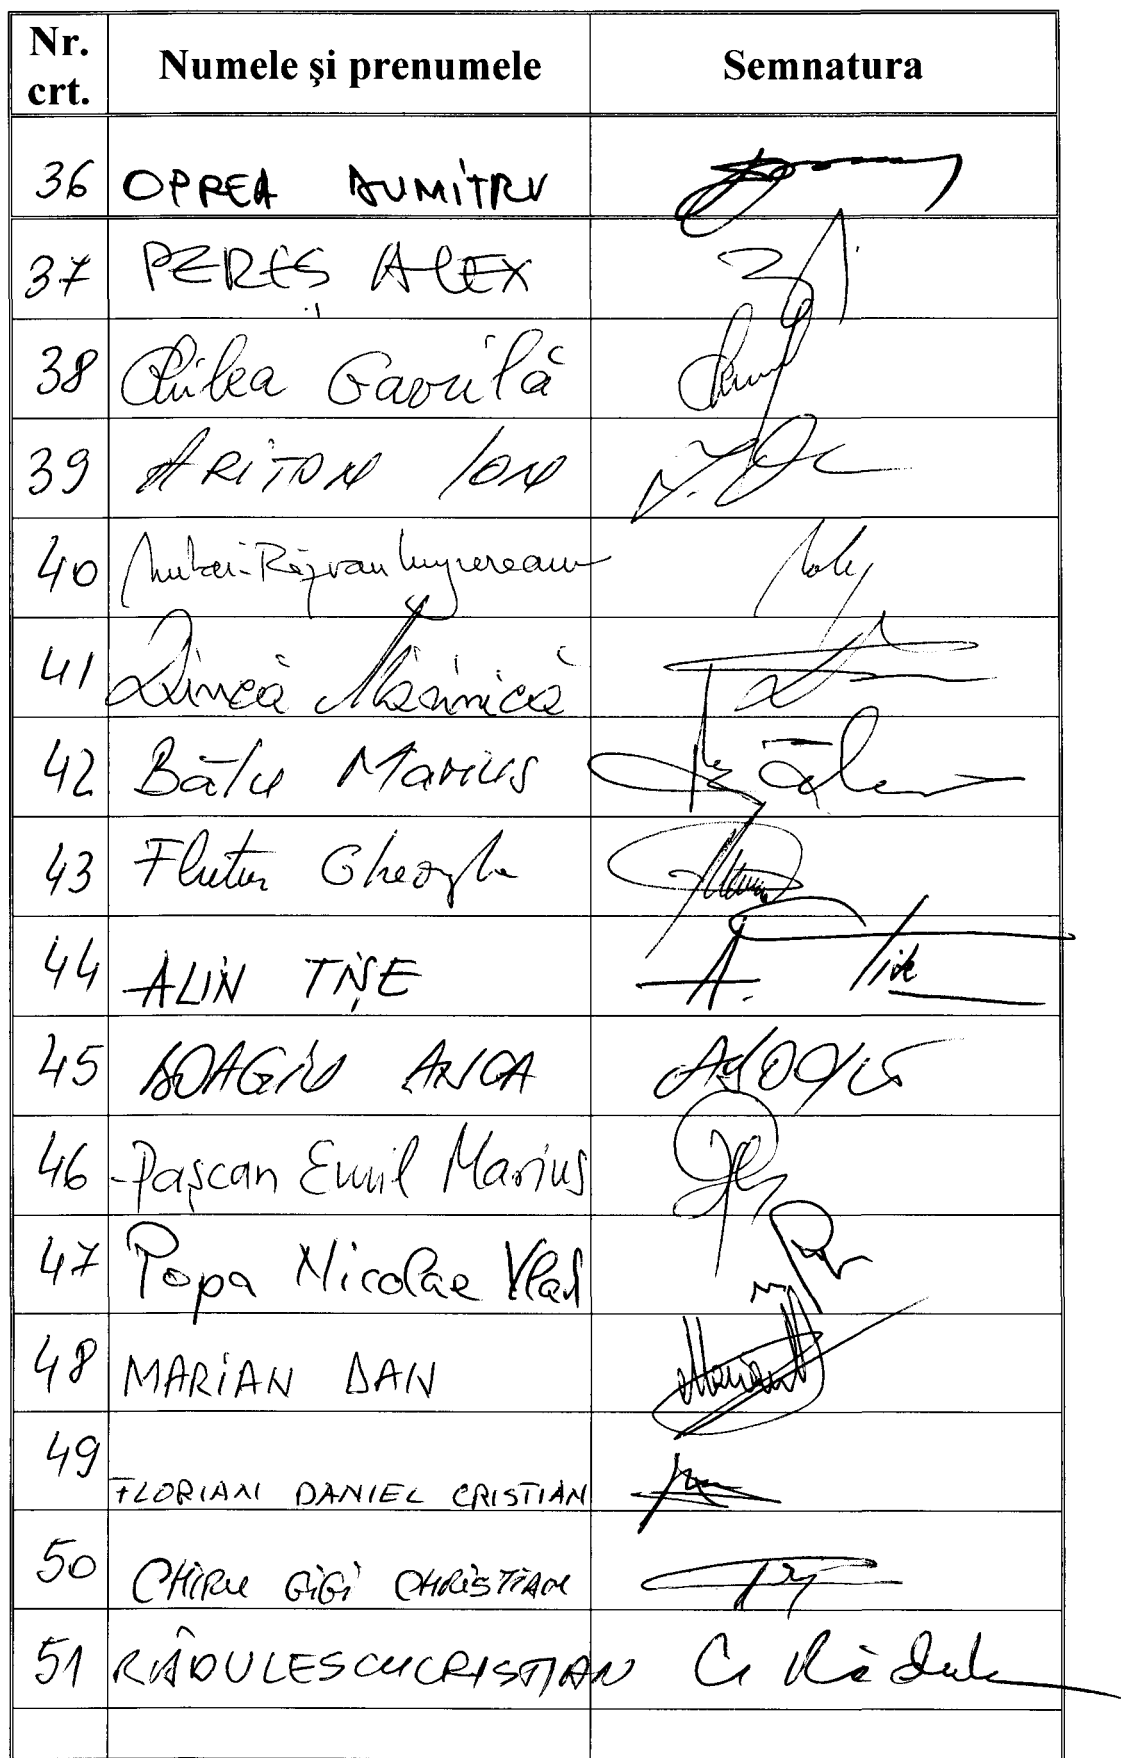 Nr. crt. Numele și prenumele Semnatura
36 OPREA DUMITRU
37 PEREȘ ALEX
38 Gavrilă
39 ARITON ION
40 Mihai-Răzvan Ungureanu
41 Dincă Mărinică
42 Bâlu Marius
43 Flutur Gheorghe
44 ALIN TIȘE A. Tișe
45 BOAGIU ANCA ABoagiu
46 Pașcan Emil Marius
47 Popa Nicolae Vlad
48 MARIAN DAN Marian
49 FLORIAN DANIEL CRISTIAN
50 CHIRU GIGI CHRISTIAN
51 RĂDULESCU CRISTIAN C Rădule